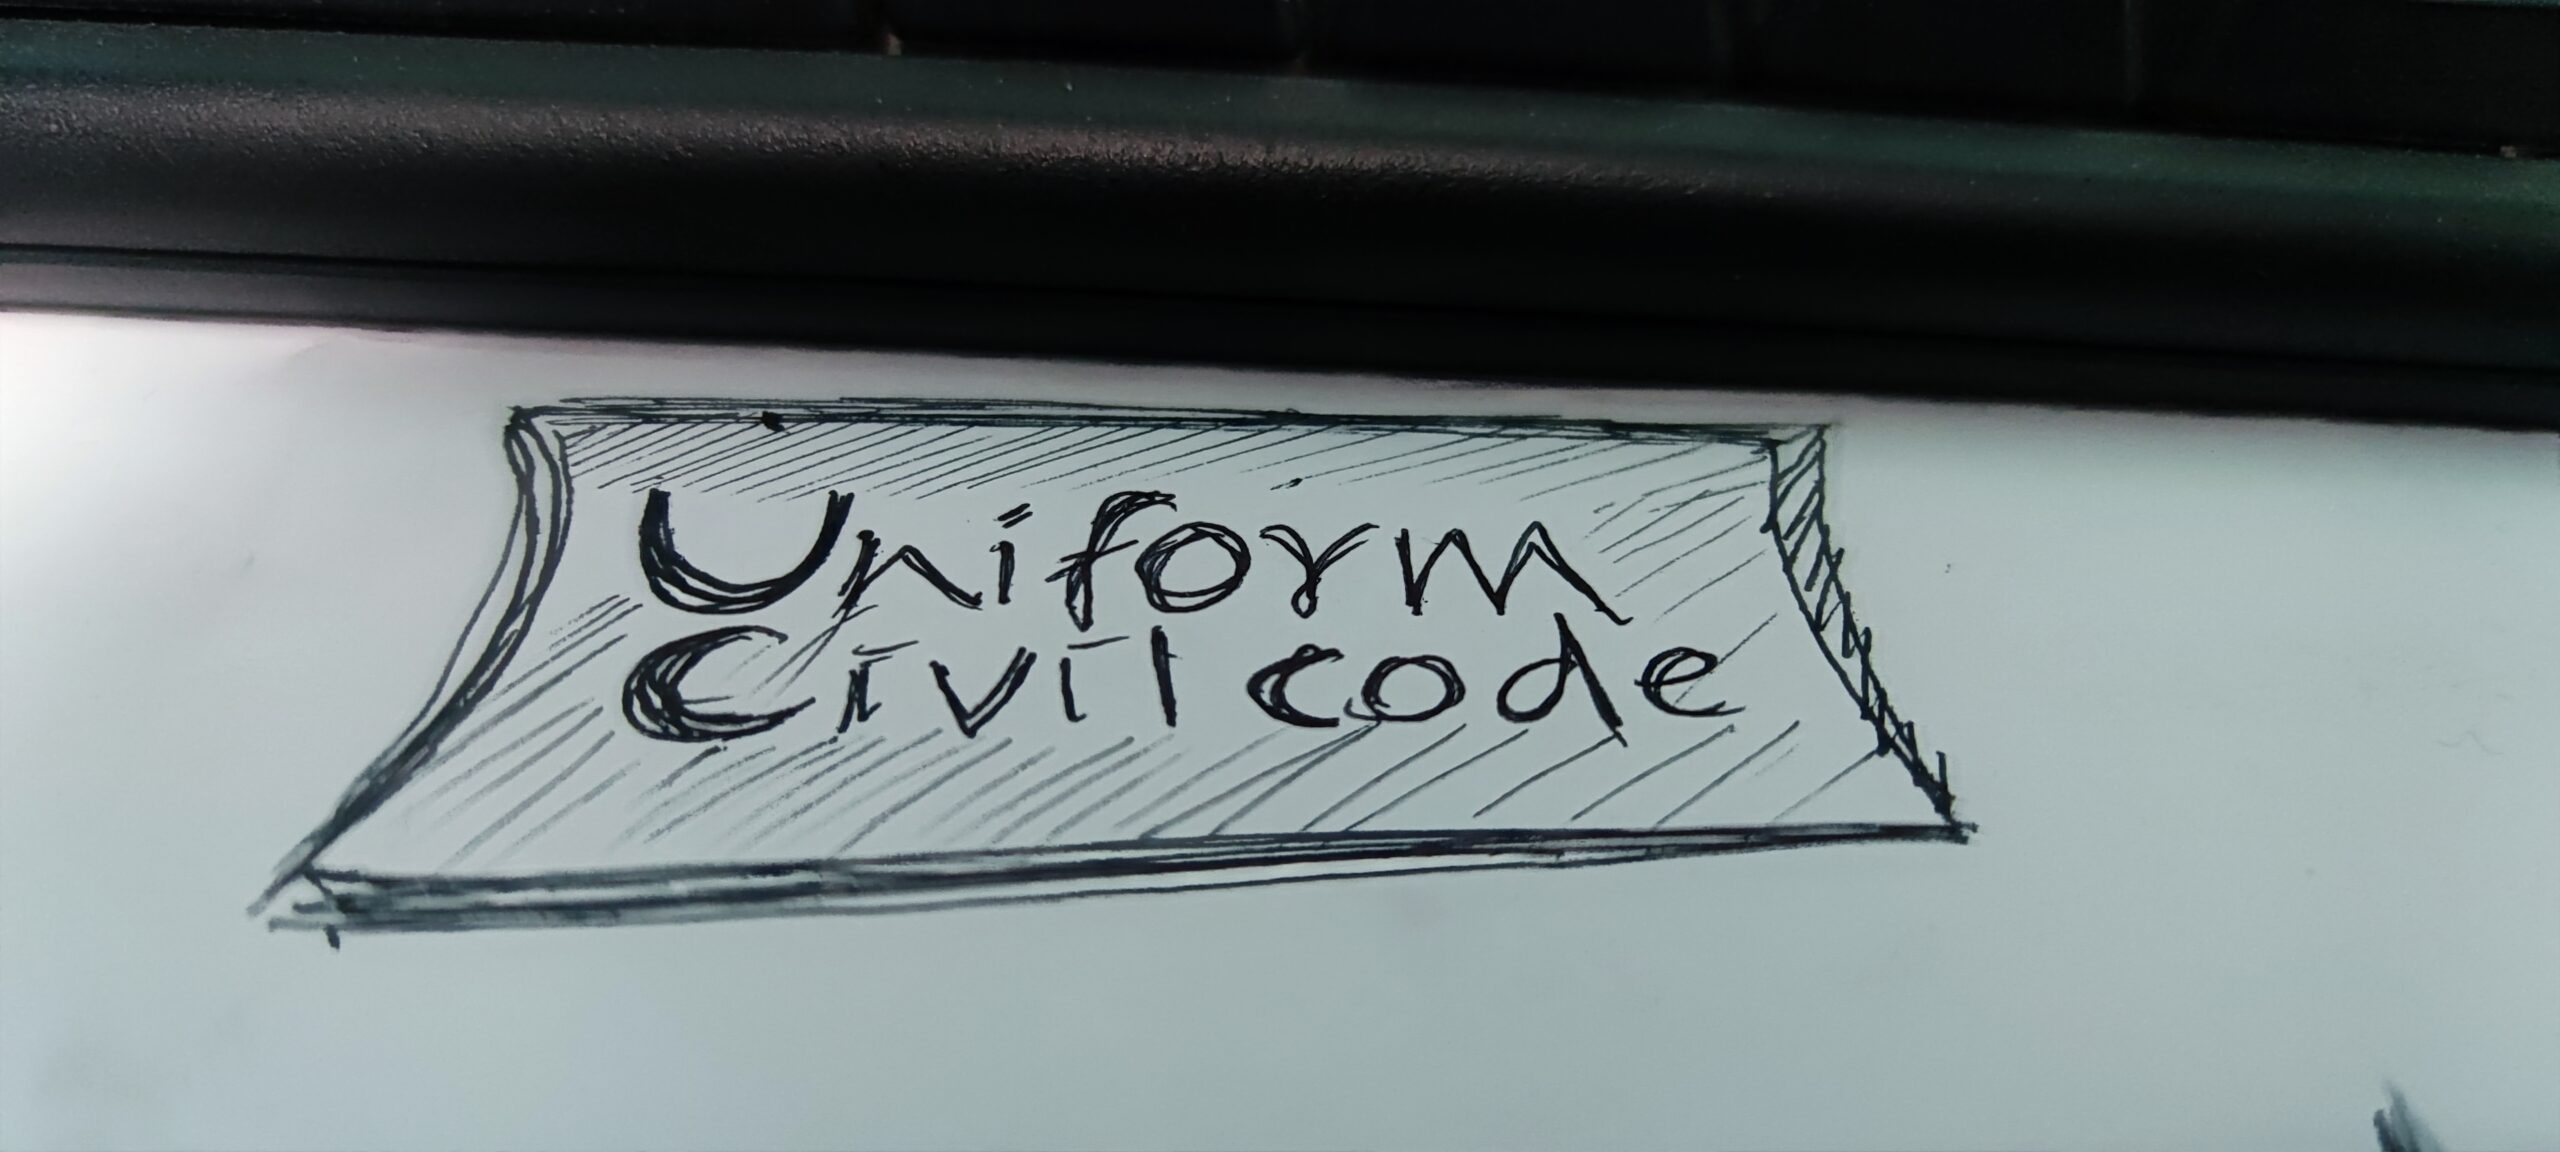 Uniform
Civil code